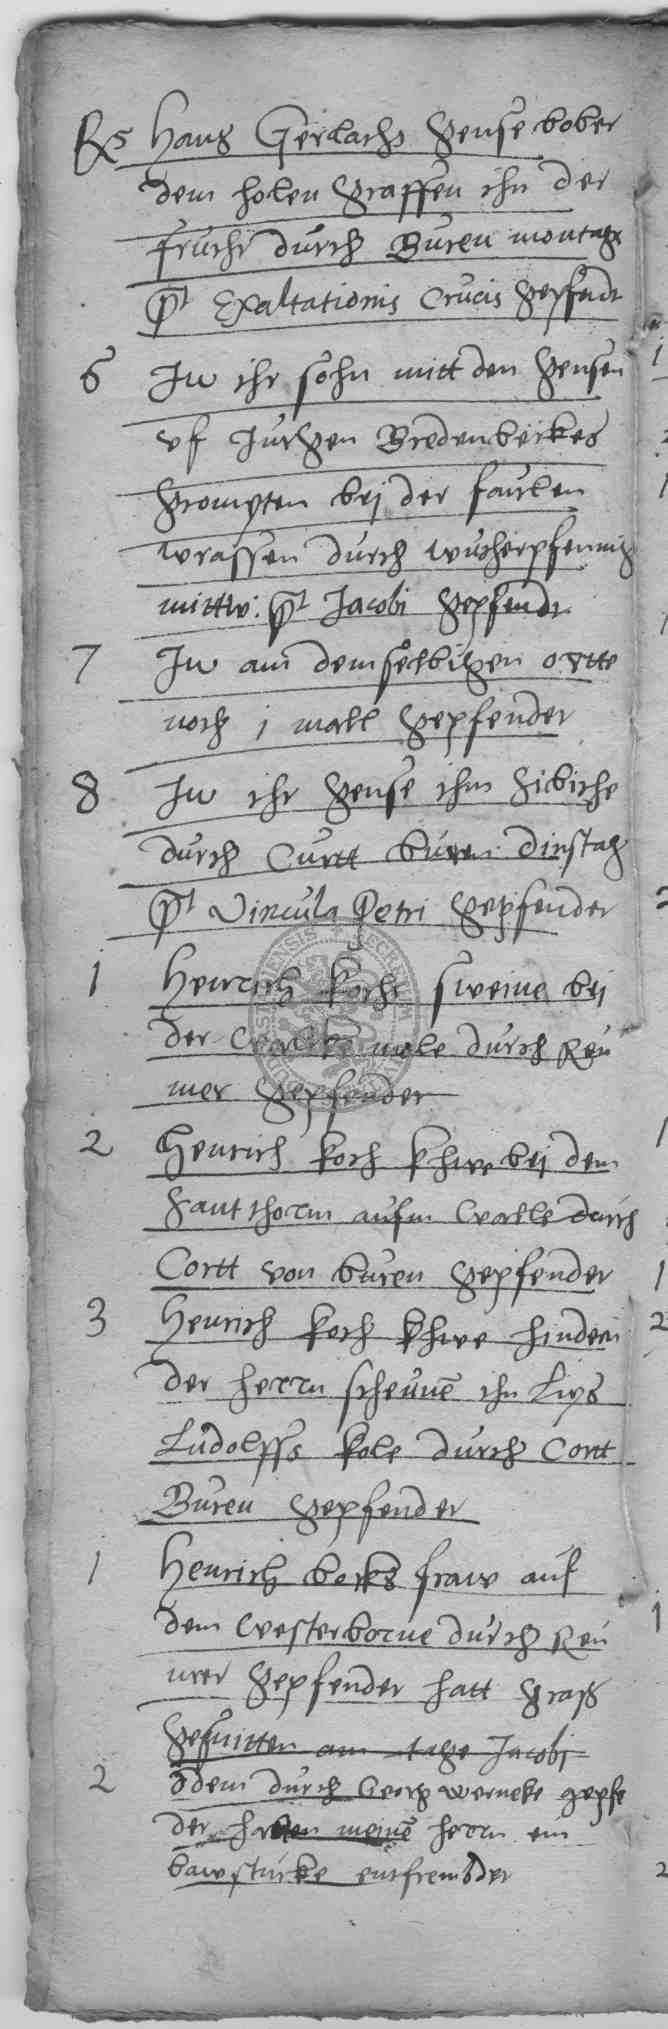 5 Hans Gerlachs gense bober
dem holen graffen ihn der
frucht durch Buren montags
pt Exaltationis Crucis gepfendt
6 Iw ihr sohn mitt den gensen
vf Jurgen Bredenbeckes
bei der faulen
wrassen durch wucherpfennig
mittw: pt Jacobi gepfendt
7 Iw am demselbigen ortte
noch 1 mall gepfendet
8 Iw ihr gense ihm
durch Curtt buren dinstag
pt Vincula Petri gepfendet
1 Henrich Kochs sweine bei
der durch Reu
mer gepfendet
2 Henrich Koch Khwe bei dem
thorm aufm walle durch
Cortt von buren gepfendet
3 Henrich Koch Khwe hinder
der herrn scheune ihn
Ludolffs Kole durch Cortt
Buren gepfendet
1 Henrich bocks fraw auf
dem westerborne durch Reu
mer gepfendet hatt graß
gesnitten am tage Jacobi
2 durch Georg werneke gepfe
det meine herrn ein
bawstucke entfrembdet